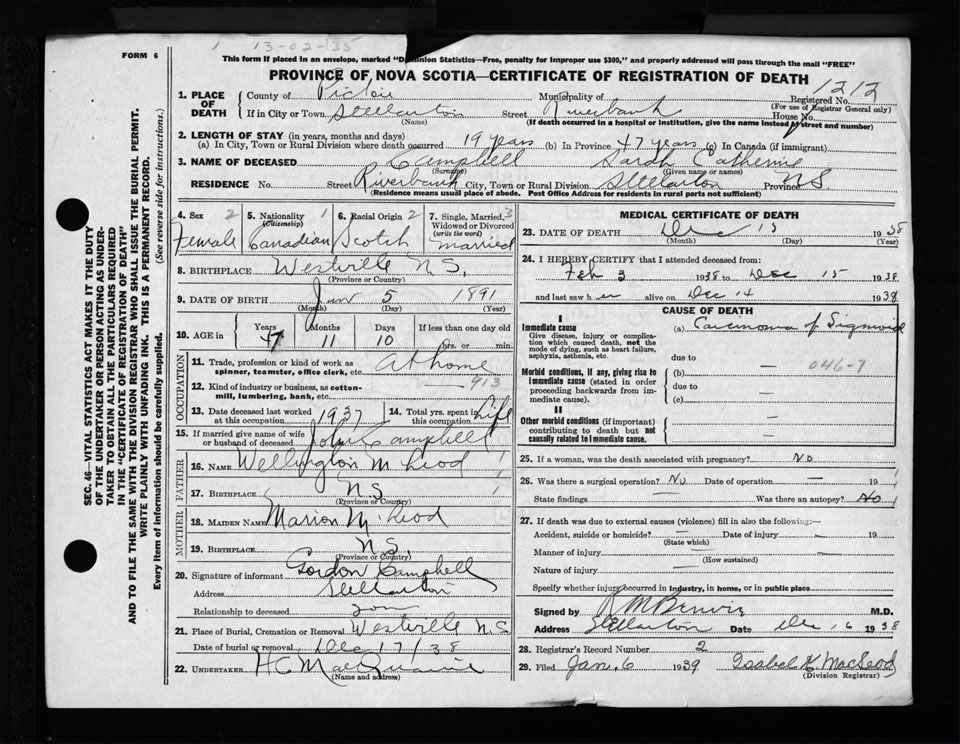 FORM 6
13-02-35
This form if placed in an envelope, marked "Dominion Statistics—Free, penalty for improper use $300," and properly addressed will pass through the mail "FREE"
PROVINCE OF NOVA SCOTIA—CERTIFICATE OF REGISTRATION OF DEATH
1212
1. PLACE OF DEATH County of Pictou Municipality of Registered No.
(For use of Registrar General only)
If in City or Town Stellarton Street Riverbank House No.
(Name) (If death occurred in a hospital or institution, give the name instead of street and number)
2. LENGTH OF STAY (in years, months and days)
(a) In City, Town or Rural Division where death occurred 19 years (b) In Province 47 years (c) In Canada (if immigrant)
3. NAME OF DECEASED Campbell Sarah Catherine
(Surname) (Given name or names)
RESIDENCE No. Street Riverbank City, Town or Rural Division Stellarton Province NS
(Residence means usual place of abode. Post Office Address for residents in rural parts not sufficient)
4. Sex 2 Female
5. Nationality (Citizenship) 1 Canadian
6. Racial Origin 2 Scotch
7. Single, Married, Widowed or Divorced (write the word) 3 married
8. BIRTHPLACE Westville N.S.
(Province or Country)
9. DATE OF BIRTH Jan 5 1891
(Month) (Day) (Year)
10. AGE in Years 47 Months 11 Days 10 If less than one day old
hrs. or min.
OCCUPATION
11. Trade, profession or kind of work as spinner, teamster, office clerk, etc. At home
12. Kind of industry or business, as cotton-mill, lumbering, bank, etc. — 913
13. Date deceased last worked at this occupation 1937
14. Total yrs. spent in this occupation Life
15. If married give name of wife or husband of deceased John Campbell
FATHER
16. NAME Wellington McLeod
17. BIRTHPLACE N.S.
(Province or Country)
MOTHER
18. MAIDEN NAME Marion McLeod
19. BIRTHPLACE N.S.
(Province or Country)
20. Signature of informant Gordon Campbell
Address Stellarton
Relationship to deceased son
21. Place of Burial, Cremation or Removal Westville N.S
Date of burial or removal Dec 17/38
22. UNDERTAKER H C MacQuarrie
(Name and address)
MEDICAL CERTIFICATE OF DEATH
23. DATE OF DEATH Dec 15 1938
(Month) (Day) (Year)
24. I HEREBY CERTIFY that I attended deceased from:
Feb 3 1938 to Dec 15 1938
and last saw her alive on Dec 14 1938
CAUSE OF DEATH
I
Immediate cause (a) Carcinoma of Sigmoid
Give disease, injury or complication which caused death, not the mode of dying, such as heart failure, asphyxia, asthenia, etc.
due to
046-7
Morbid conditions, if any, giving rise to immediate cause (stated in order proceeding backwards from immediate cause) (b) —
due to —
(c) —
II
Other morbid conditions (if important) contributing to death but not causally related to immediate cause. —
25. If a woman, was the death associated with pregnancy? No
26. Was there a surgical operation? No Date of operation — 19
State findings — Was there an autopsy? No
27. If death was due to external causes (violence) fill in also the following:—
Accident, suicide or homicide? — Date of injury — 19
(State which)
Manner of injury —
(How sustained)
Nature of injury —
Specify whether injury occurred in industry, in home, or in public place
Signed by M.D.
Address Stellarton Date Dec. 16 1938
28. Registrar's Record Number 2
29. Filed Jan. 6 1939 Isabel K. MacLeod
(Division Registrar)
SEC. 46—VITAL STATISTICS ACT MAKES IT THE DUTY
OF THE UNDERTAKER OR PERSON ACTING AS UNDER-
TAKER TO OBTAIN ALL THE PARTICULARS REQUIRED
IN THE "CERTIFICATE OF REGISTRATION OF DEATH"
AND TO FILE THE SAME WITH THE DIVISION REGISTRAR WHO SHALL ISSUE THE BURIAL PERMIT.
WRITE PLAINLY WITH UNFADING INK. THIS IS A PERMANENT RECORD.
Every item of information should be carefully supplied. (See reverse side for instructions.)